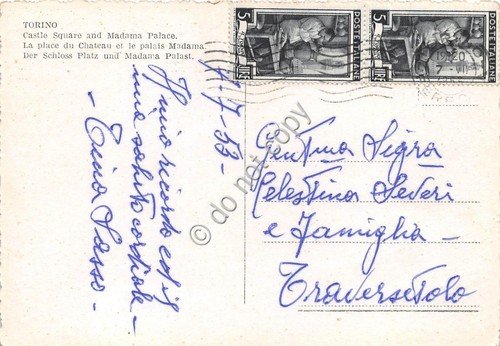 TORINO
Castle Square and Madama Palace.
La place du Chateau et le palais Madama.
Der Schloss Platz und Madama Palast.
5 LIRE
POSTE ITALIANE
5 LIRE
POSTE ITALIANE
19.20
7-53-
Il mio ricordo ed il
mio saluto cordiale -
- Tina Sasso -
Gentma Sigra
Celestina Severi
e Famiglia -
Traversetolo
© do not copy